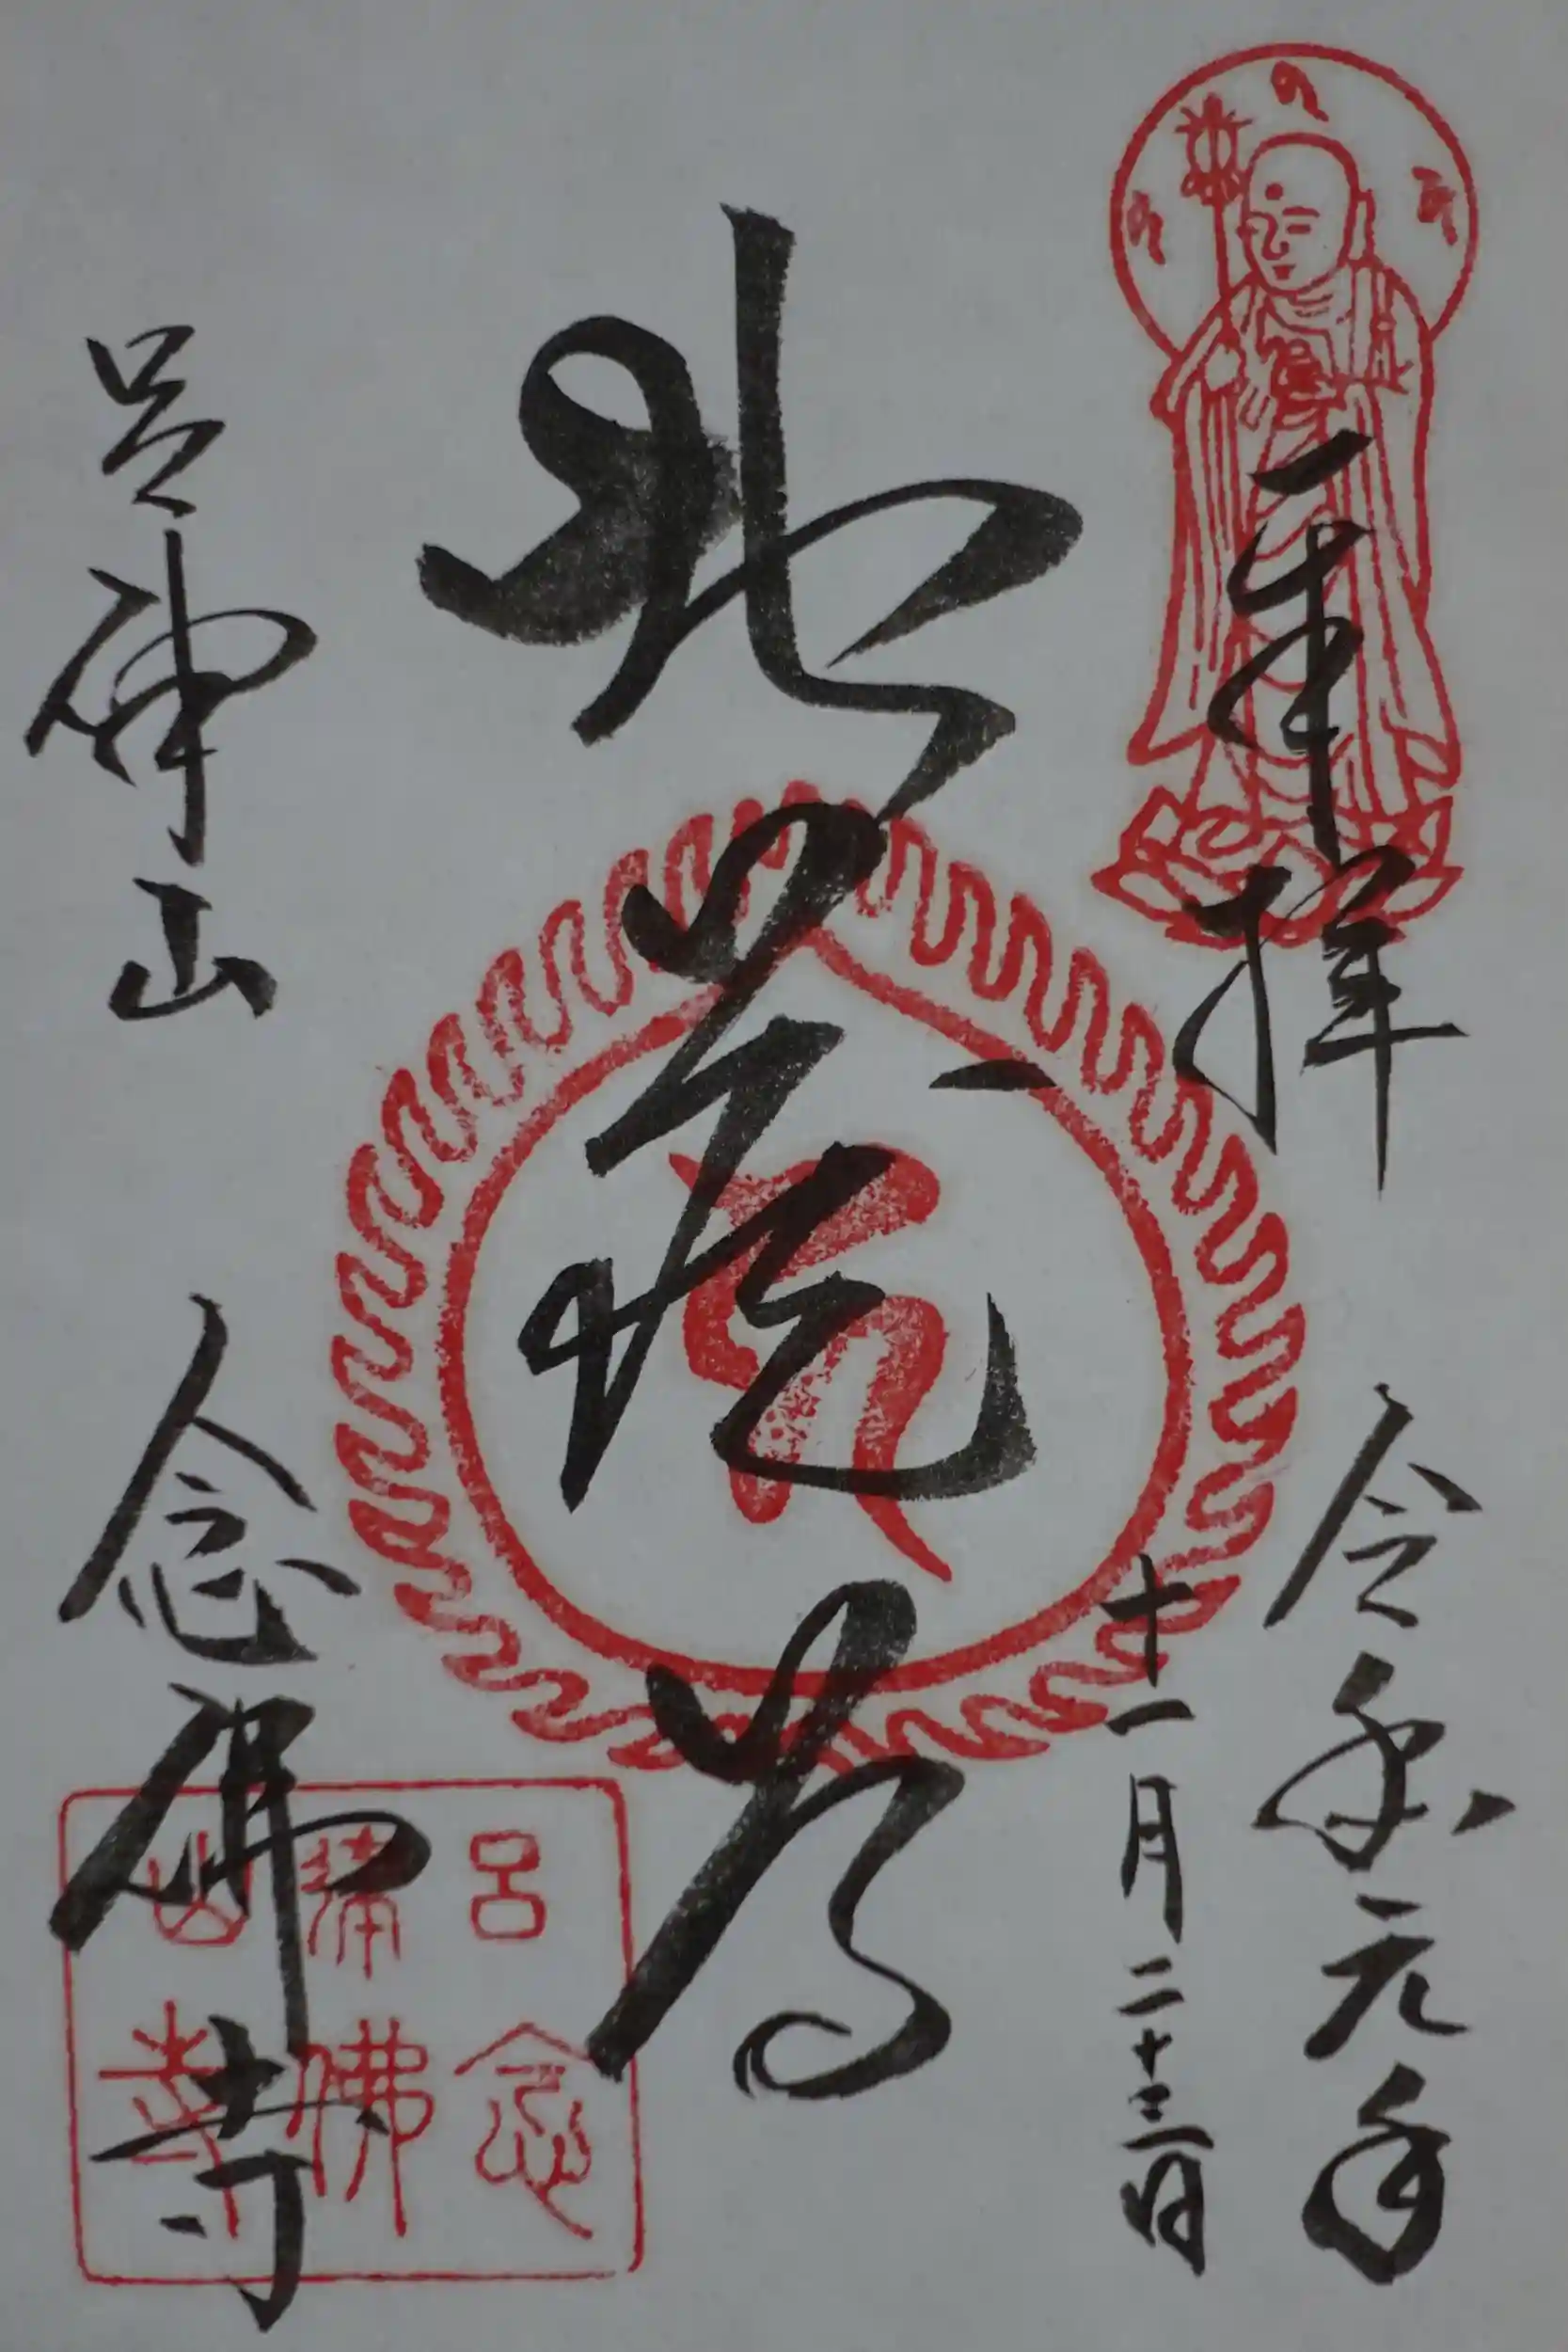 奉拝
令和元年
十一月二十三日
地蔵尊
念佛寺
呂
山
念佛寺